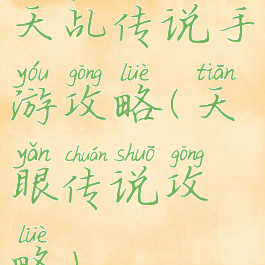 天乱传说手
yóu gōng lüè tiān
游攻略(天
yǎn chuán shuō gōng
眼传说攻
lüè
略)